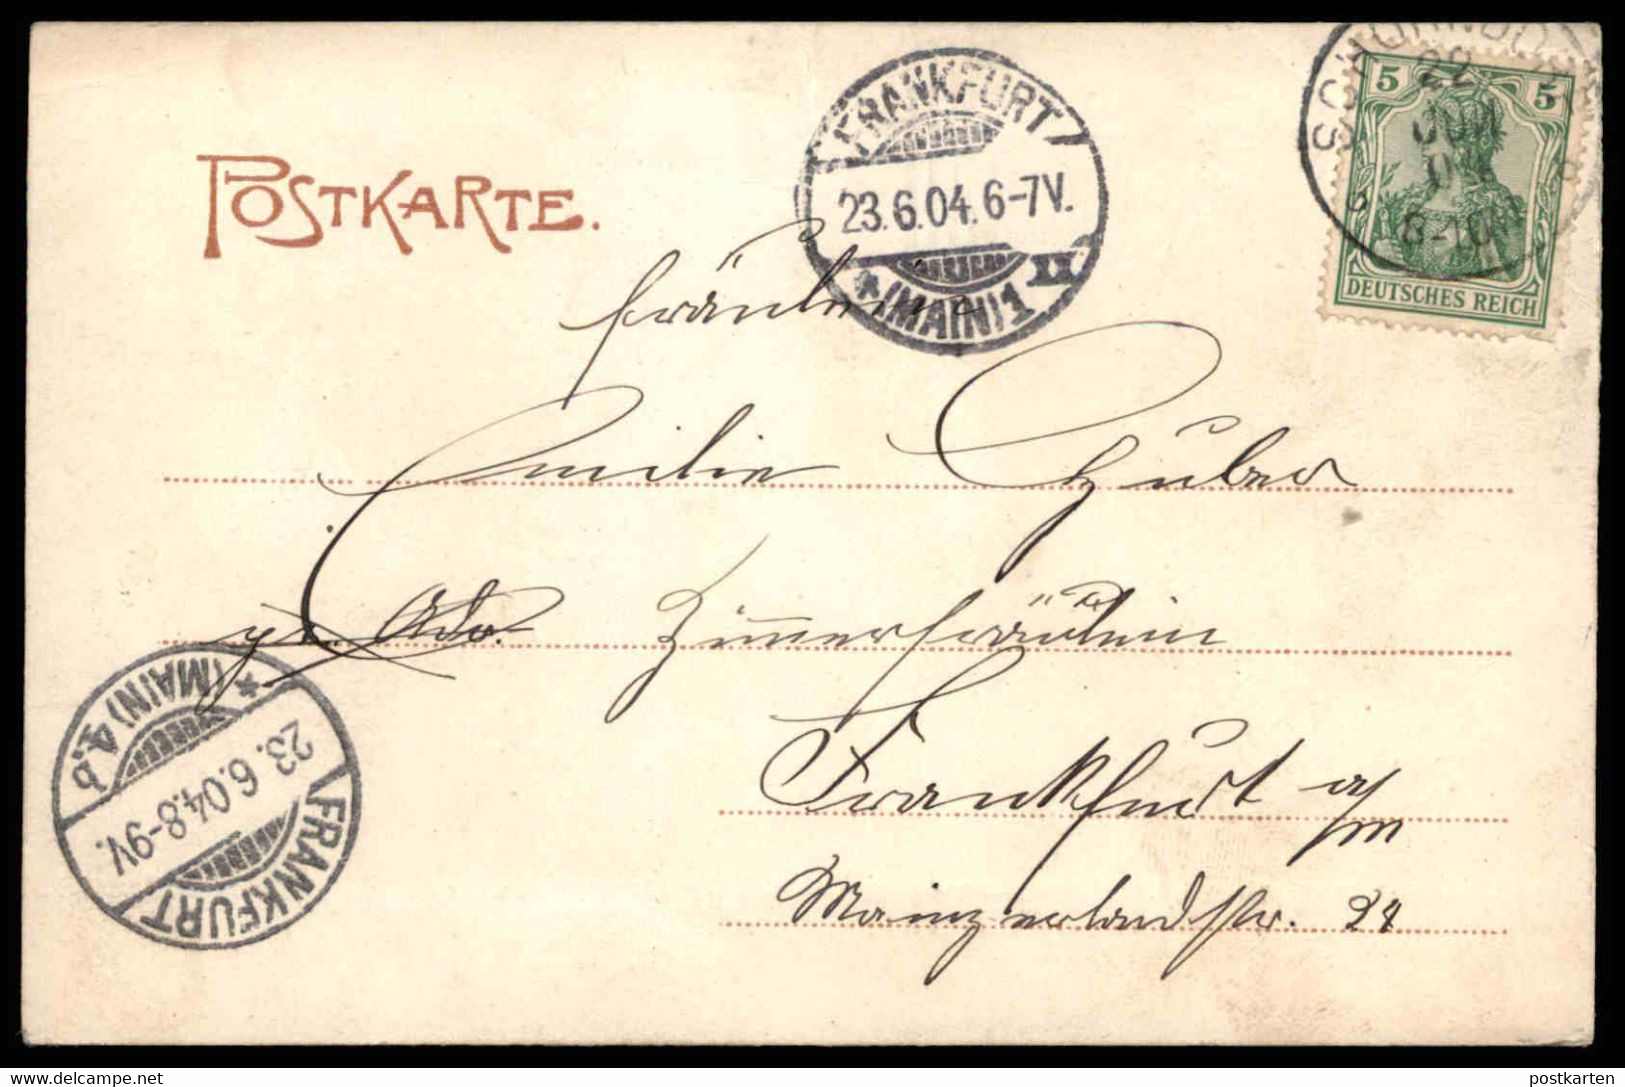 POSTKARTE.
FRANKFURT
23.6.04.6-7V.
* (MAIN) 1 II
SCHORNDORF
22
JUN
04
8-10N
5 5
DEUTSCHES REICH
Fräulein
Emilie Huber
pr. Adr. Zimmerfräulein
Frankfurt a/m
Mainzerlandstr.
* (MAIN) 4.b
23.6.04.8-9V.
FRANKFURT
delcampe.net
postkarten